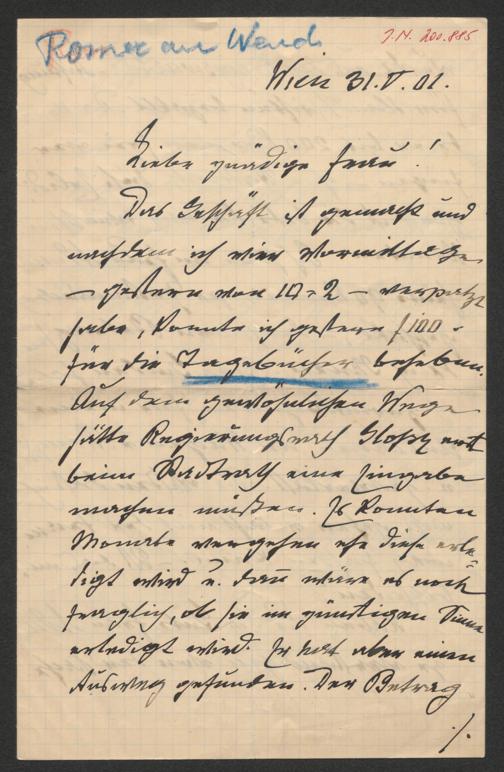 Romeo an Wend
J.N. 200.885
Wien 31.V.01.
Liebe gnädige Frau!
Das Geschäft ist gemacht und
nachdem ich vier Vormittage
– gestern von 10-2 – verpatzt
habe, konnte ich gestern f 100 -
für die Tagebücher beheben.
Auf dem gewöhnlichen Wege
hätte Regierungsrath Glossy erst
beim Stadtrath eine Eingabe
machen müssen. Es konnten
Monate vergehen ehe diese erle-
digt wird u. dann wäre es noch
fraglich, ob sie im günstigen Sinne
erledigt wird. Er hat aber einen
Ausweg gefunden. Der Betrag
./.